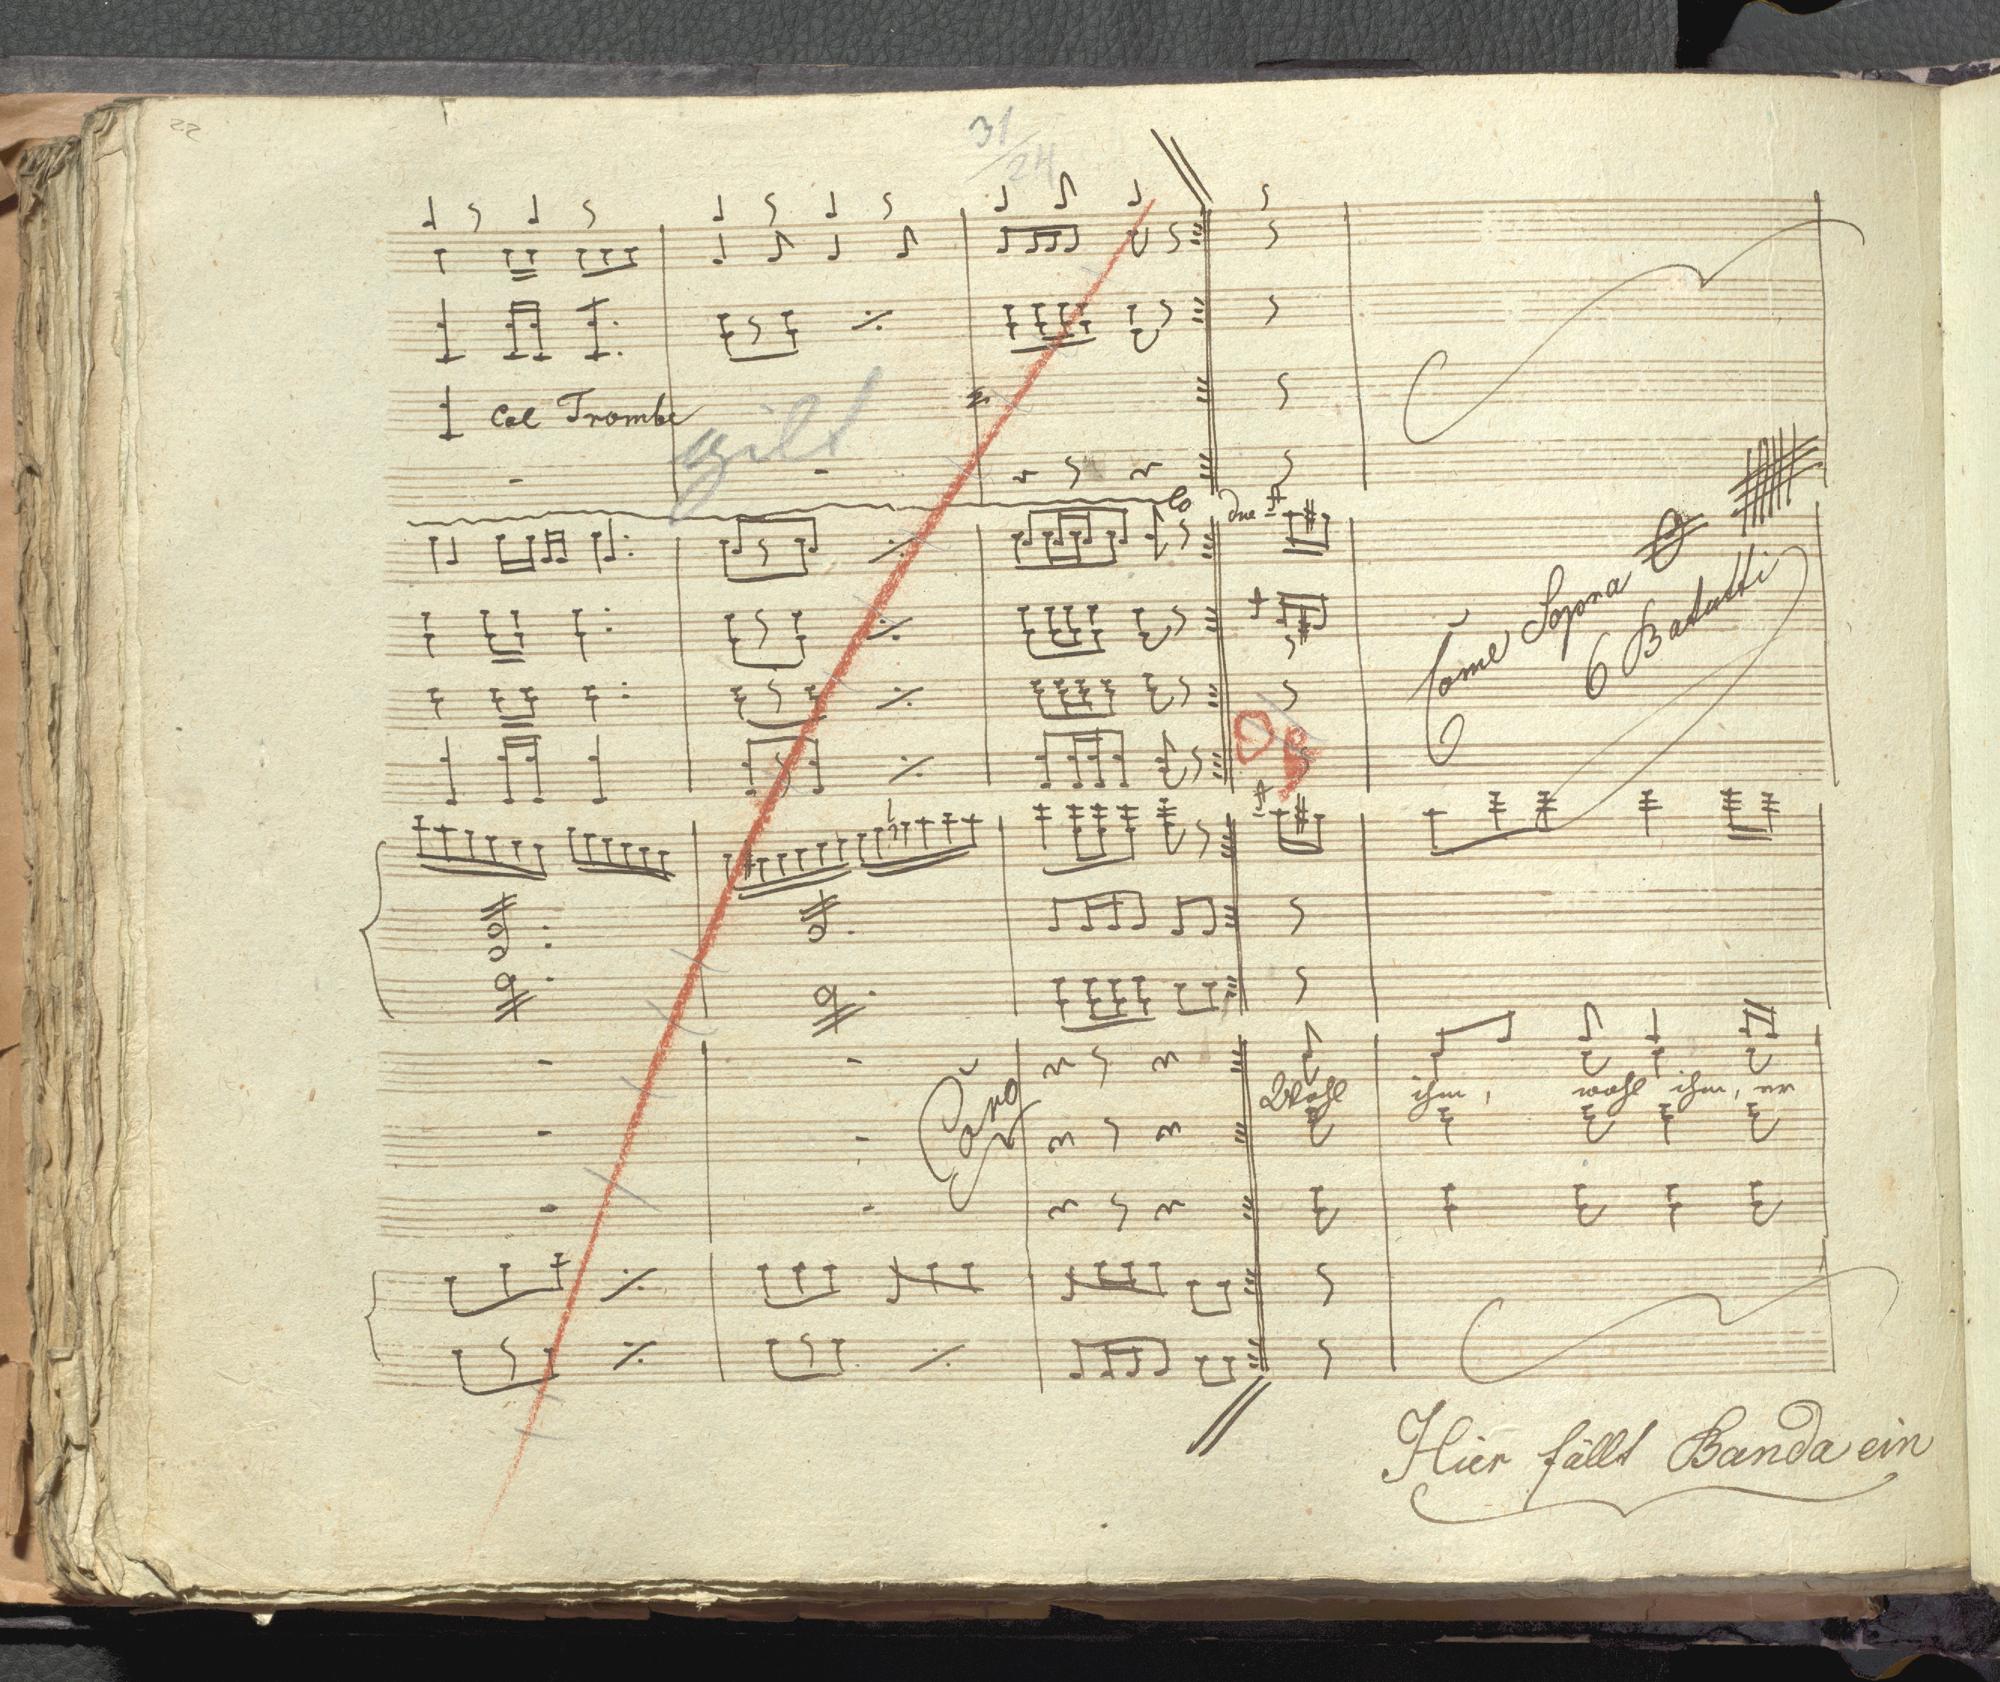 22
31/24
Col Trombe
gilt
due
Come Sopra
6 Batutti
Coro
Wohl ihm, wohl ihm, er
Hier fällt Banda ein